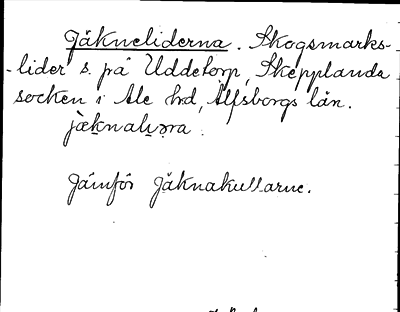 Jäkneliderna. Skogsmarks-
-lider s. på Uddetorp, Skepplanda
socken i Ale hrd, Älfsborgs län.
Jämför Jäknakullarne.